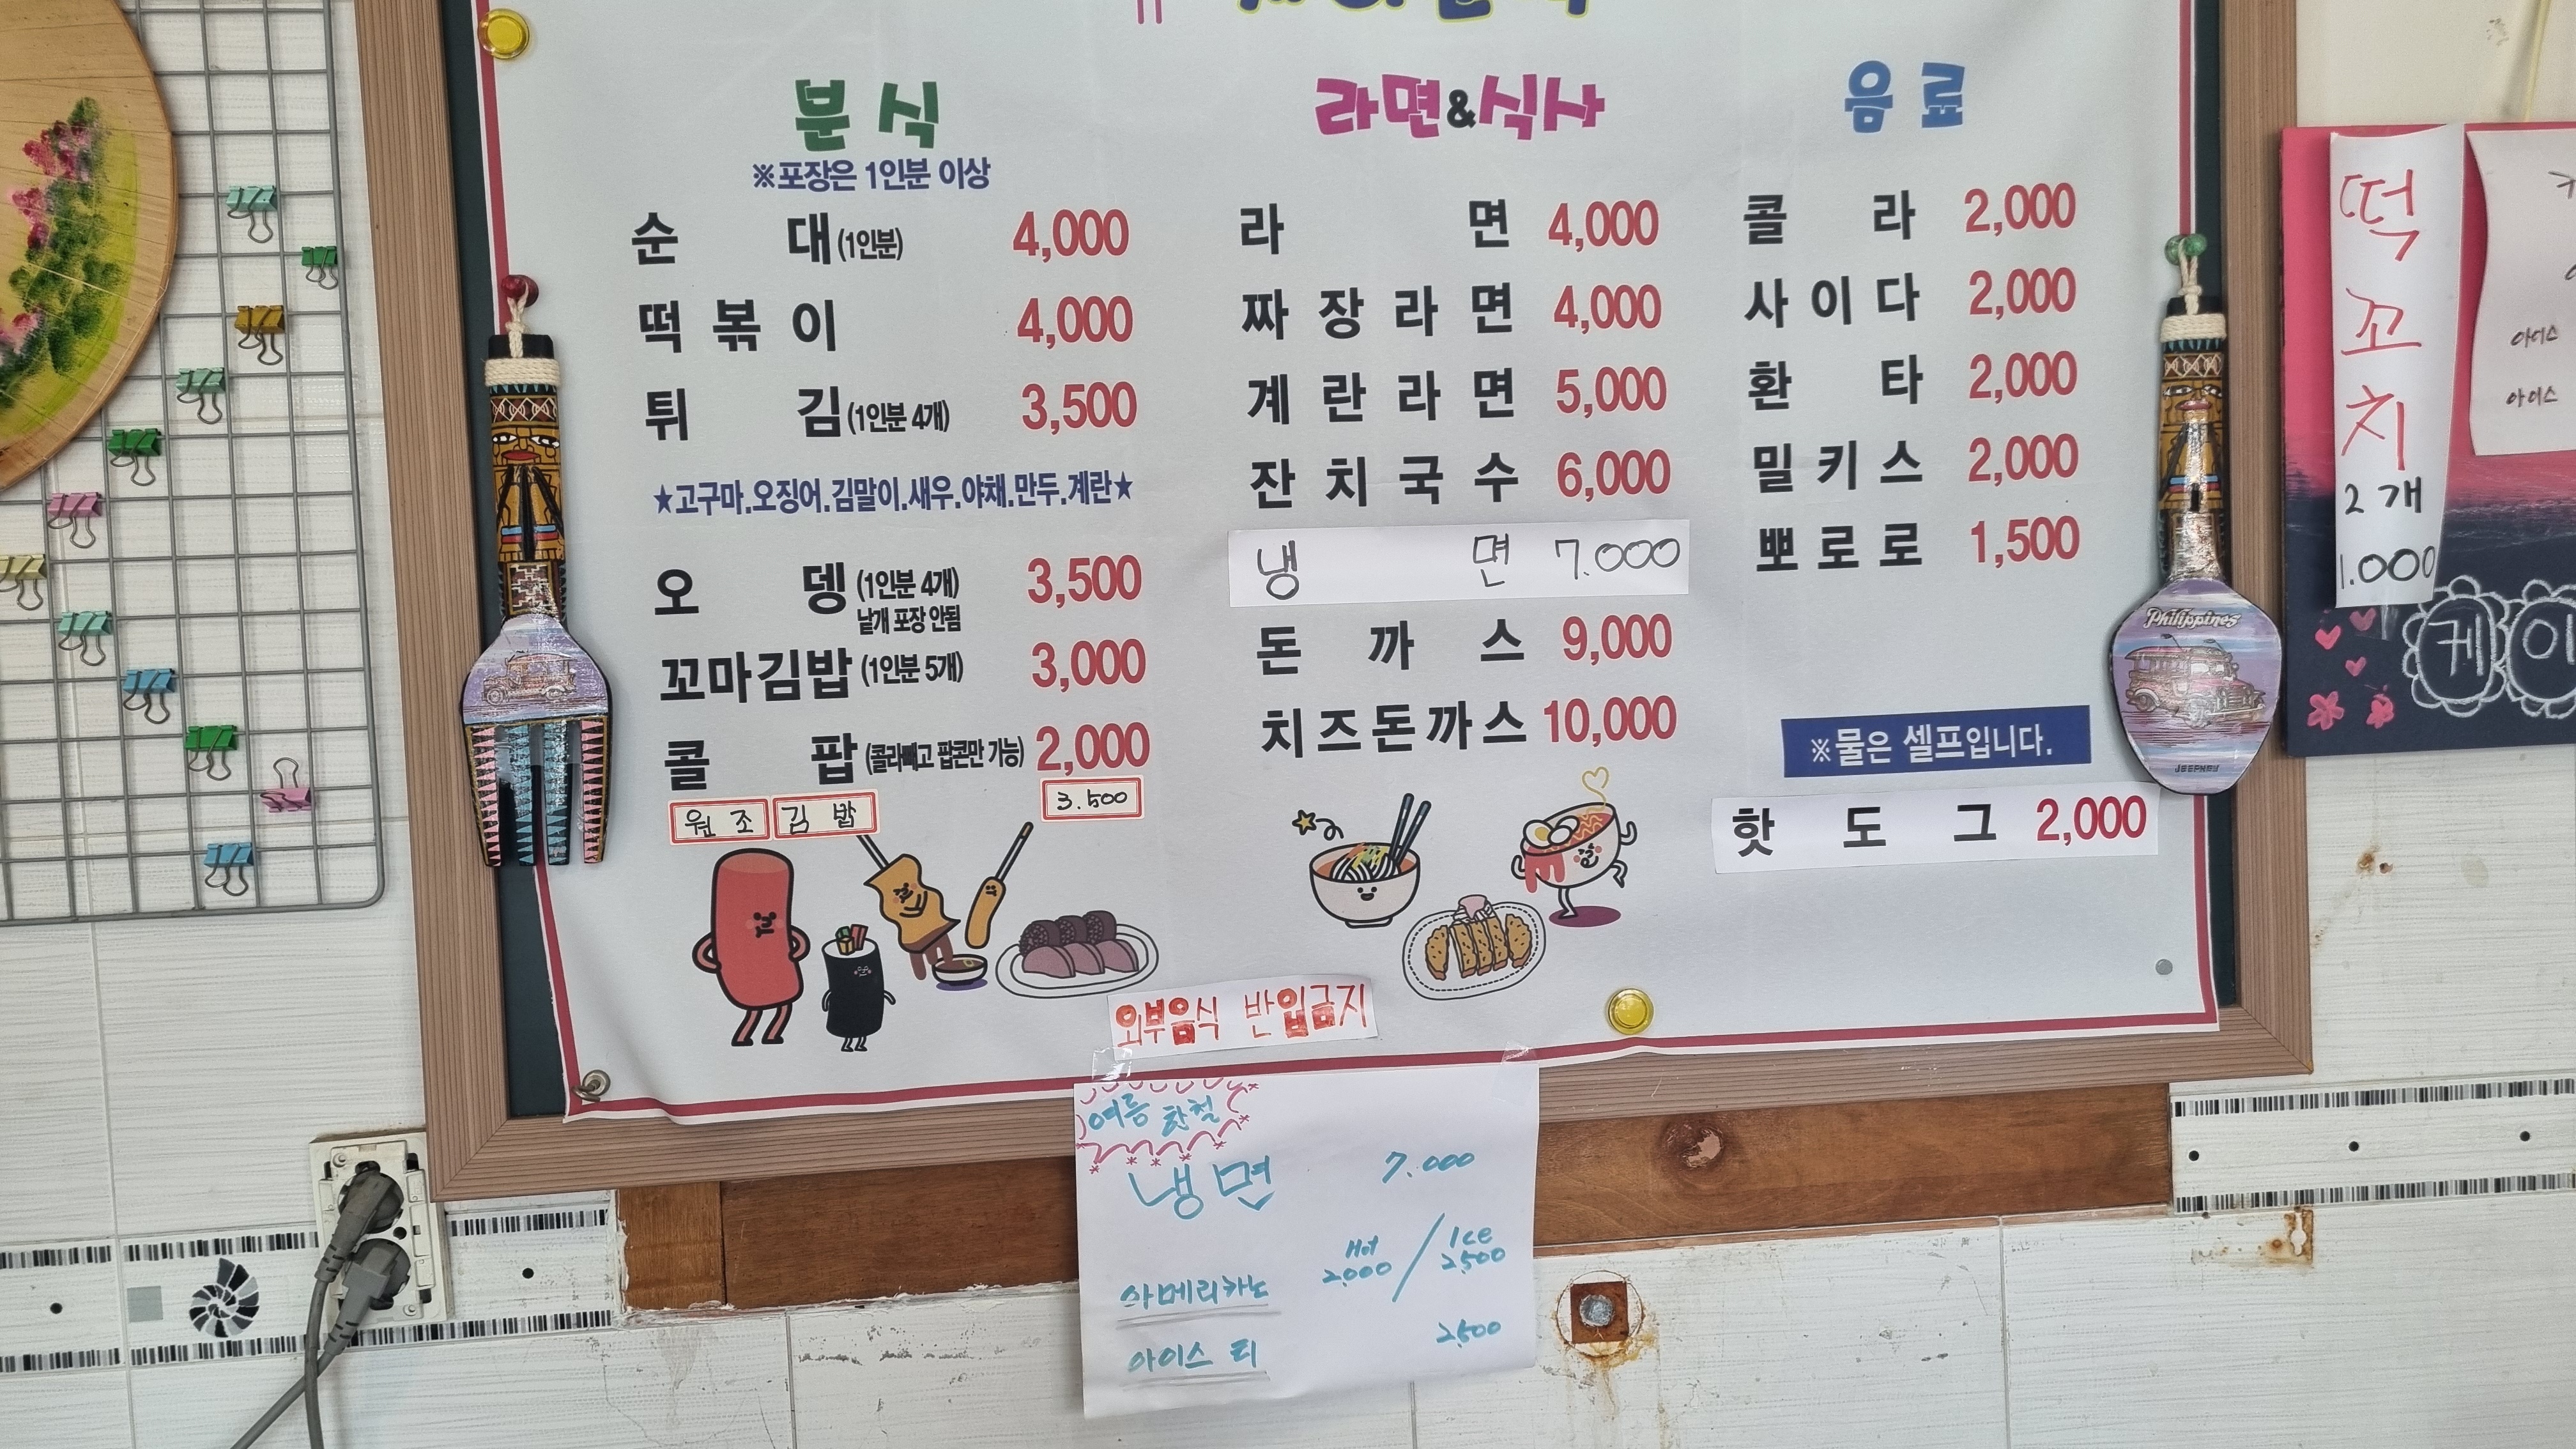 분식
※포장은 1인분 이상
순대(1인분) 4,000
떡볶이 4,000
튀김(1인분 4개) 3,500
★고구마.오징어.김말이.새우.야채.만두.계란★
오뎅(1인분 4개) 3,500
낱개 포장 안됨
꼬마김밥(1인분 5개) 3,000
콜팝(콜라빼고 팝콘만 가능) 2,000
원조김밥 3.500
라면&식사
라면 4,000
짜장라면 4,000
계란라면 5,000
잔치국수 6,000
냉면 7.000
돈까스 9,000
치즈돈까스 10,000
음료
콜라 2,000
사이다 2,000
환타 2,000
밀키스 2,000
뽀로로 1,500
※물은 셀프입니다.
핫도그 2,000
외부음식 반입금지
여름 한철
냉면 7.000
Hot / Ice
아메리카노 2000 / 2,500
아이스 티 2,500
Philippines
JEEPNEY
떡꼬치
2개
1.000
아이스
아이스
케이